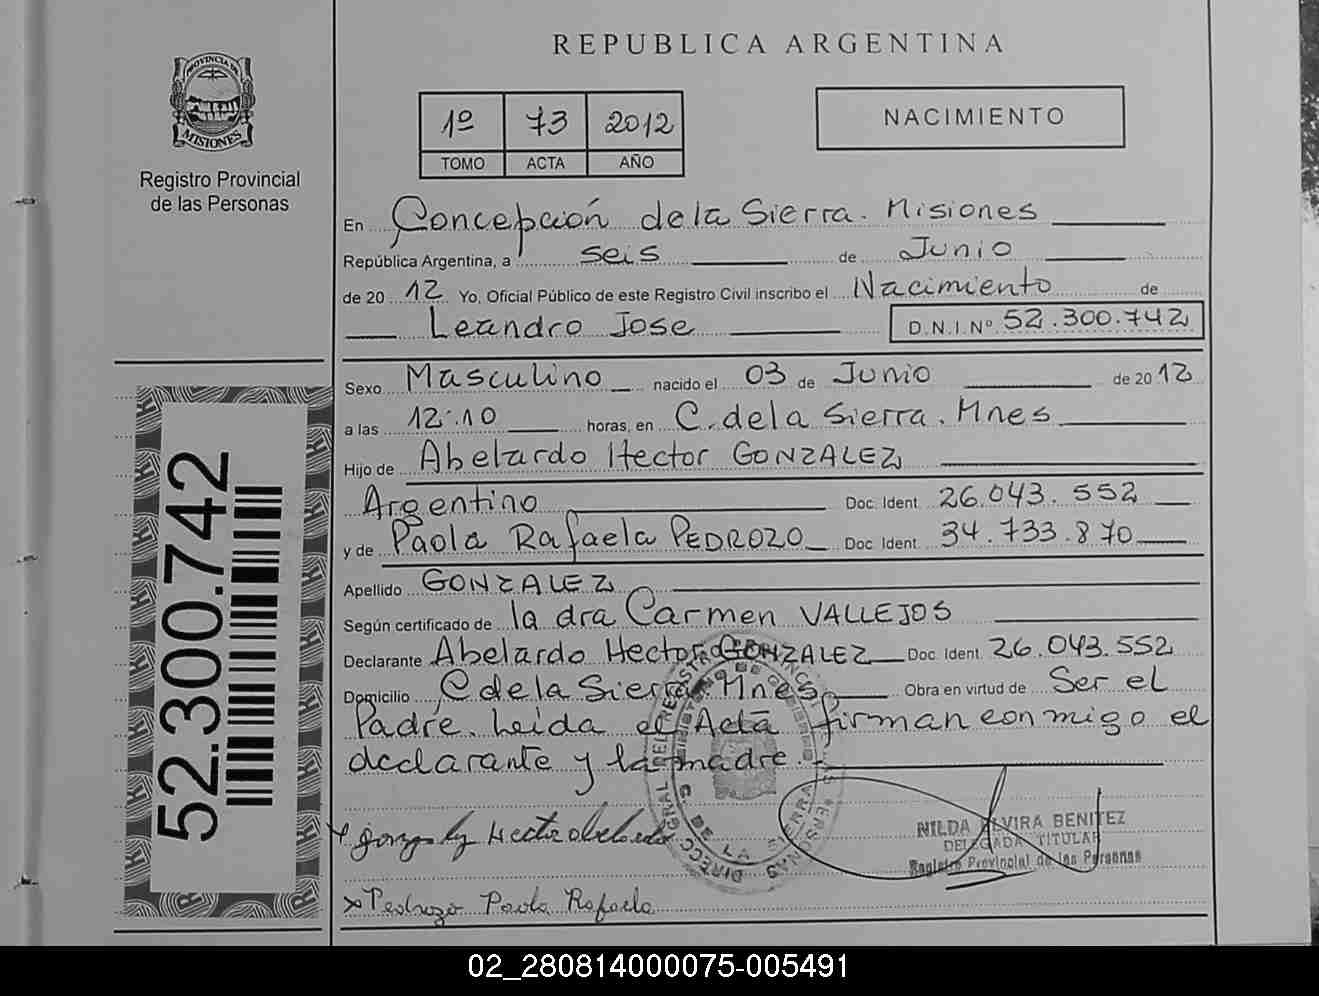 REPUBLICA ARGENTINA
PROVINCIA DE
MISIONES
Registro Provincial
de las Personas
1º 73 2012
TOMO ACTA AÑO
NACIMIENTO
En Concepción de la Sierra. Misiones
República Argentina, a seis de Junio
de 2012 Yo, Oficial Público de este Registro Civil inscribo el Nacimiento de
Leandro Jose D.N.I.Nº 52.300.742
Sexo Masculino nacido el 03 de Junio de 2012
a las 12:10 horas, en C. de la Sierra. Mnes
Hijo de Abelardo Hector GONZALEZ
Argentino Doc. Ident. 26.043.552
y de Paola Rafaela PEDROZO Doc. Ident. 34.733.870
Apellido GONZALEZ
Según certificado de la dra Carmen VALLEJOS
Declarante Abelardo Hector GONZALEZ Doc. Ident. 26.043.552
Domicilio C de la Sierra Mnes Obra en virtud de Ser el
Padre. Leida el Acta firman conmigo el
declarante y la madre.
NILDA ELVIRA BENITEZ
DELEGADA TITULAR
Registro Provincial de las Personas
x Pedrozo Paola Rafaela
52.300.742
02_280814000075-005491